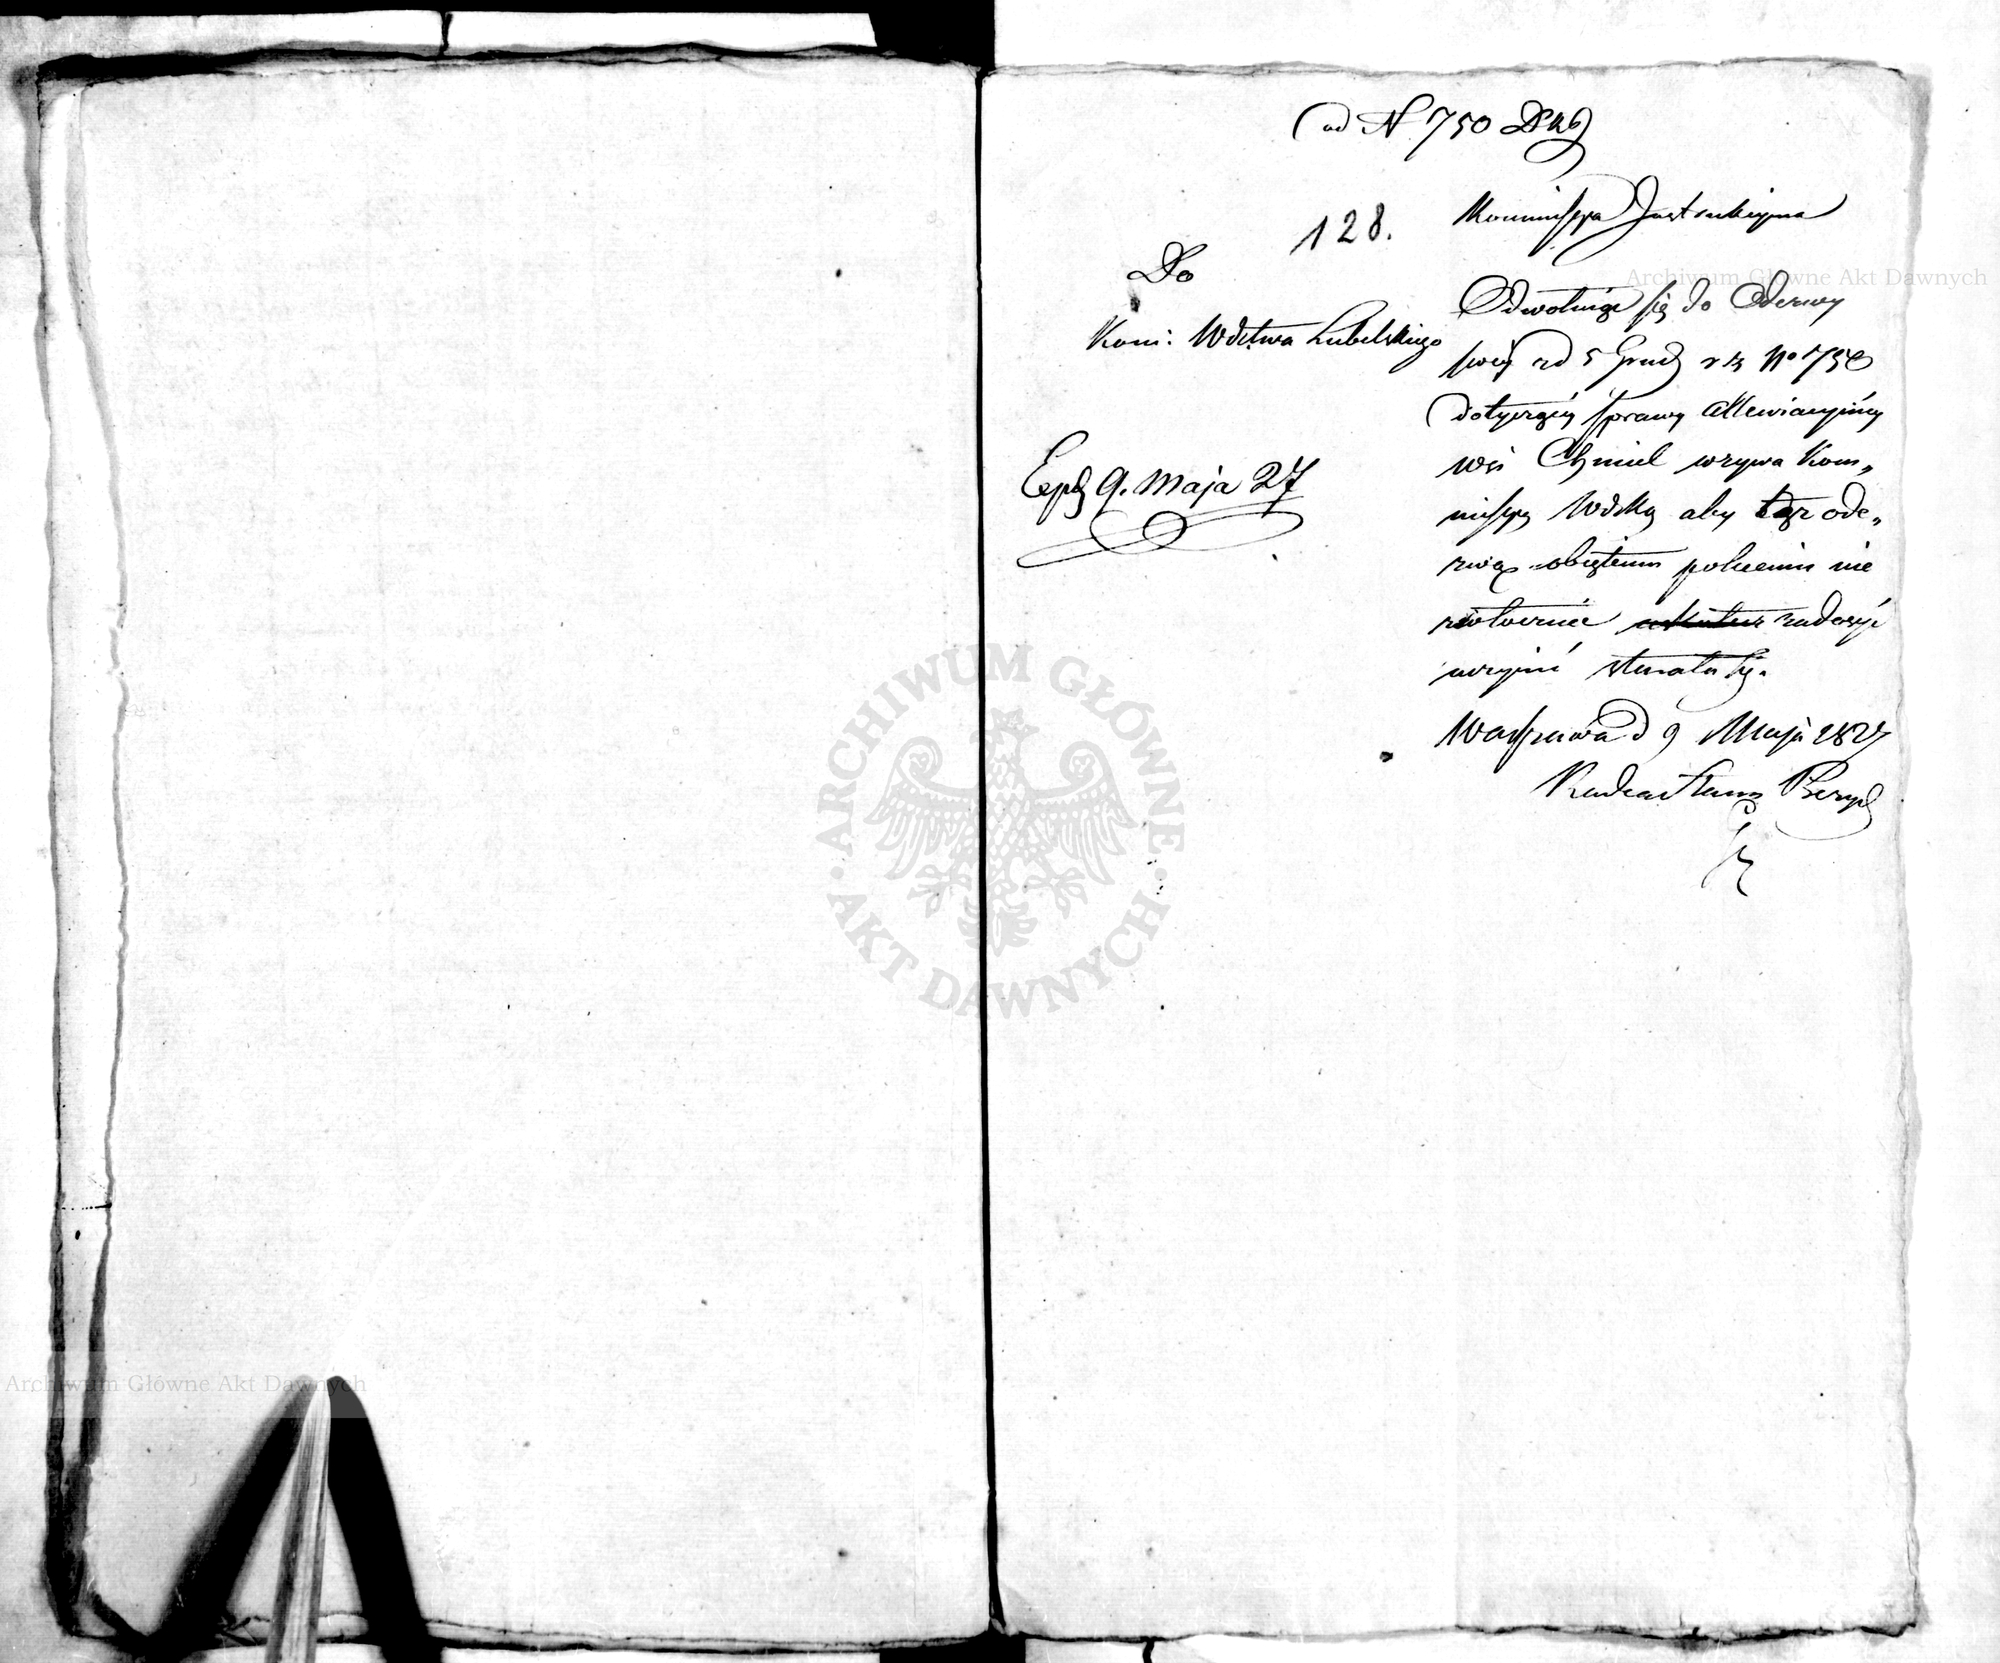 ad N 750
128.
Do
Kom: Wdztwa Lubelskiego
Exp 9. Maja 27
Kommissya Instrukcyina
Odwołuiąc się do Odezwy
swey od 5 Grud r z No 750
dotyczącey sprawy Allewiacyiney
wsi Chmiel wzywa Kom„
missyą Wdzką aby tąż ode„
zwą obiętemu poleceniu nie
zwłocznie zadosyć
uczynić starała się.
Warszawa d 9 Maja 1827
Radca Stanu Prezyd
Archiwum Główne Akt Dawnych
ARCHIWUM GŁÓWNE AKT DAWNYCH
Archiwum Główne Akt Dawnych